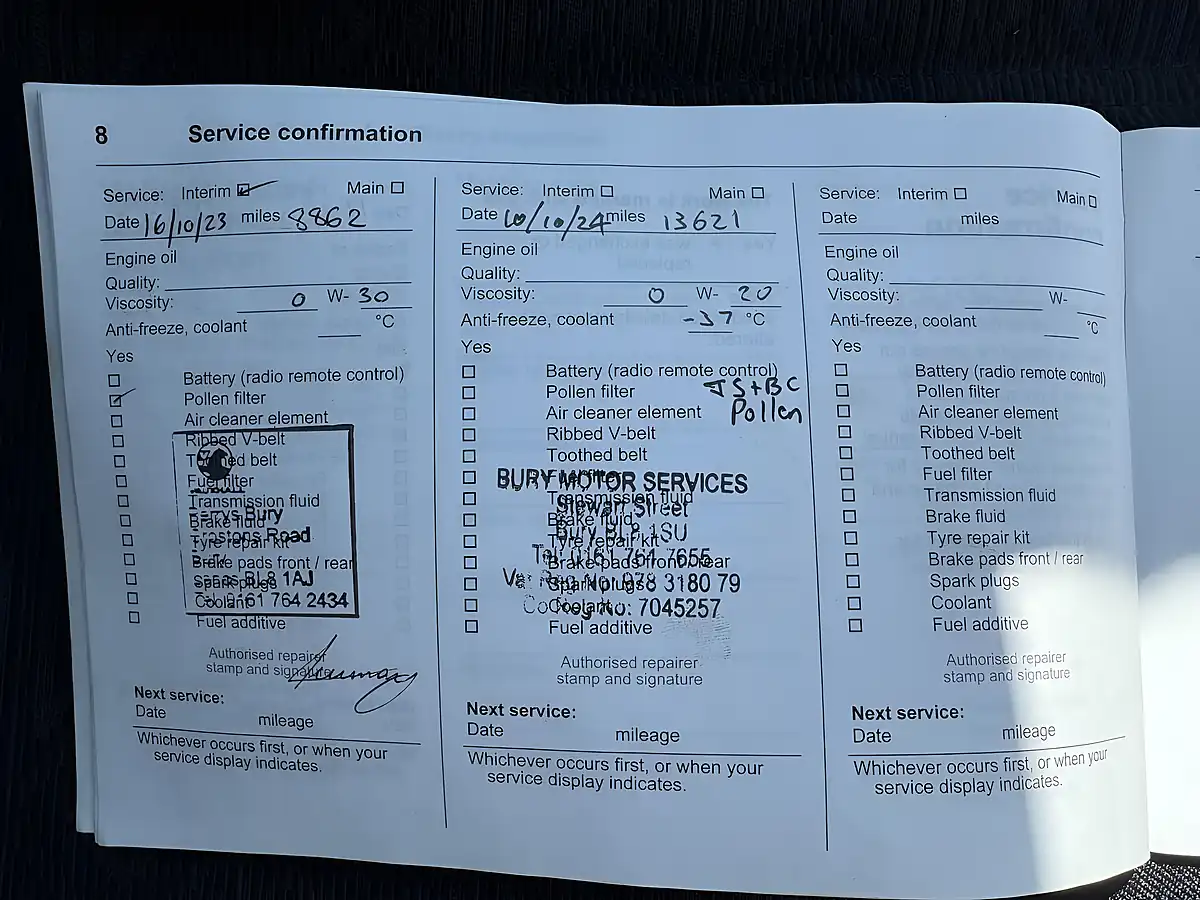 8 Service confirmation
Service: Interim Main
Date 16/10/23 miles 8862
Engine oil
Quality:
Viscosity: 0 W- 30
Anti-freeze, coolant °C
Yes
Battery (radio remote control)
Pollen filter
Air cleaner element
Ribbed V-belt
Toothed belt
Fuel filter
Transmission fluid
Brake fluid
Tyre repair kit
Brake pads front / rear
Spark plugs
Coolant
Fuel additive
Bury
Road
BL8 1AJ
Tel: 0161 764 2434
Authorised repairer
stamp and signature
Next service:
Date mileage
Whichever occurs first, or when your
service display indicates.
Service: Interim Main
Date 10/10/24 miles 13621
Engine oil
Quality:
Viscosity: 0 W- 20
Anti-freeze, coolant -37 °C
Yes
Battery (radio remote control)
Pollen filter
JS+BC
Air cleaner element
Pollen
Ribbed V-belt
Toothed belt
Fuel filter
Transmission fluid
Brake fluid
Tyre repair kit
Brake pads front / rear
Spark plugs
Coolant
Fuel additive
BURY MOTOR SERVICES
Stewart Street
Bury BL8 1SU
Tel: 0161 764 7655
Vat Reg No: 978 3180 79
Co Reg No: 7045257
Authorised repairer
stamp and signature
Next service:
Date mileage
Whichever occurs first, or when your
service display indicates.
Service: Interim Main
Date miles
Engine oil
Quality:
Viscosity: W-
Anti-freeze, coolant °C
Yes
Battery (radio remote control)
Pollen filter
Air cleaner element
Ribbed V-belt
Toothed belt
Fuel filter
Transmission fluid
Brake fluid
Tyre repair kit
Brake pads front / rear
Spark plugs
Coolant
Fuel additive
Authorised repairer
stamp and signature
Next service:
Date mileage
Whichever occurs first, or when your
service display indicates.